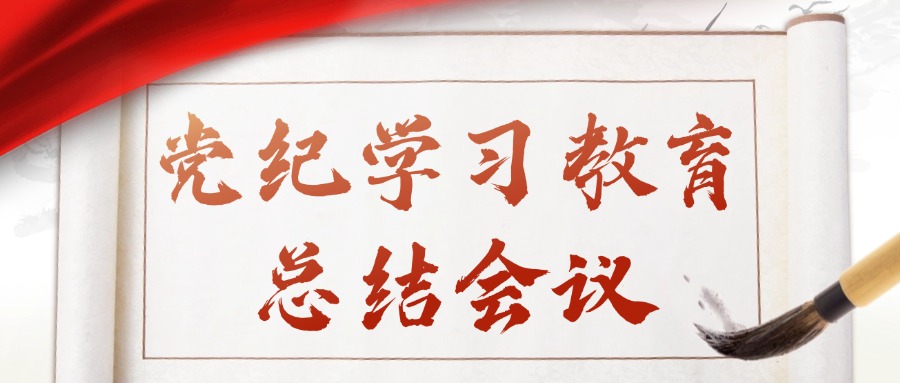 党纪学习教育
总结会议